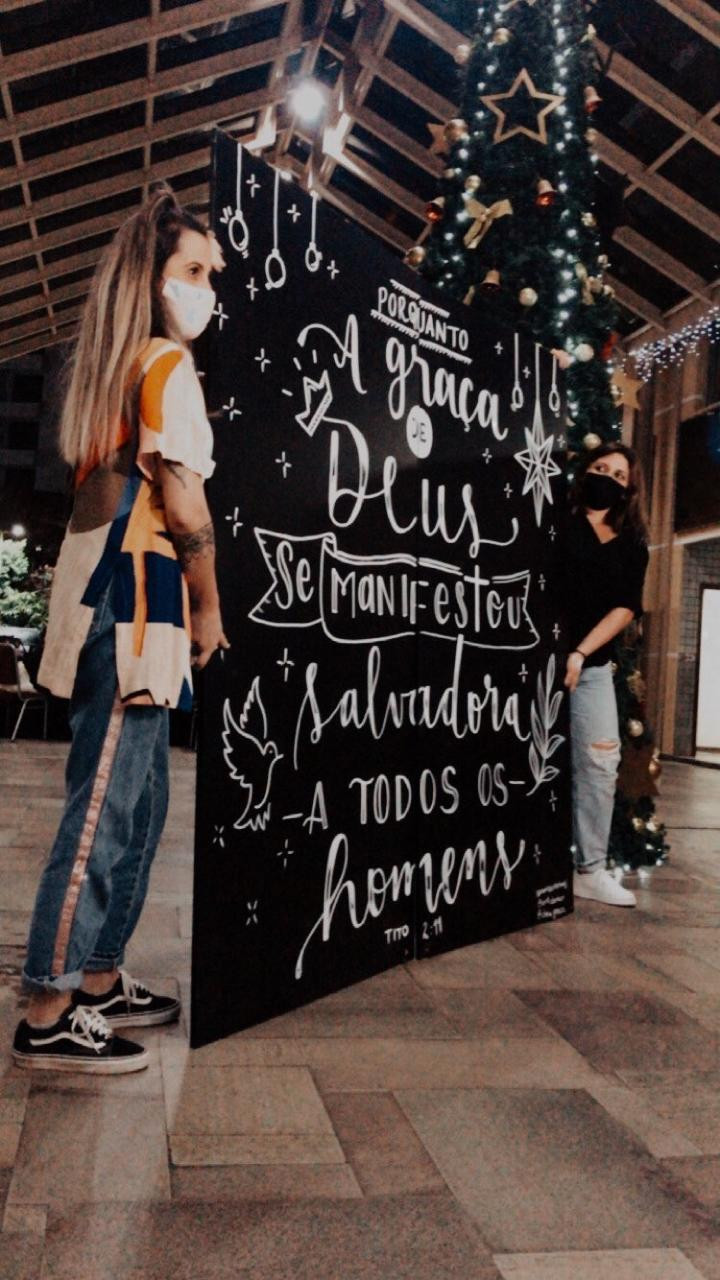 PORQUANTO
A graça
DE
Deus
Se MANIFestou
salvadora
-A TODOS OS-
homens
TITO 2:11